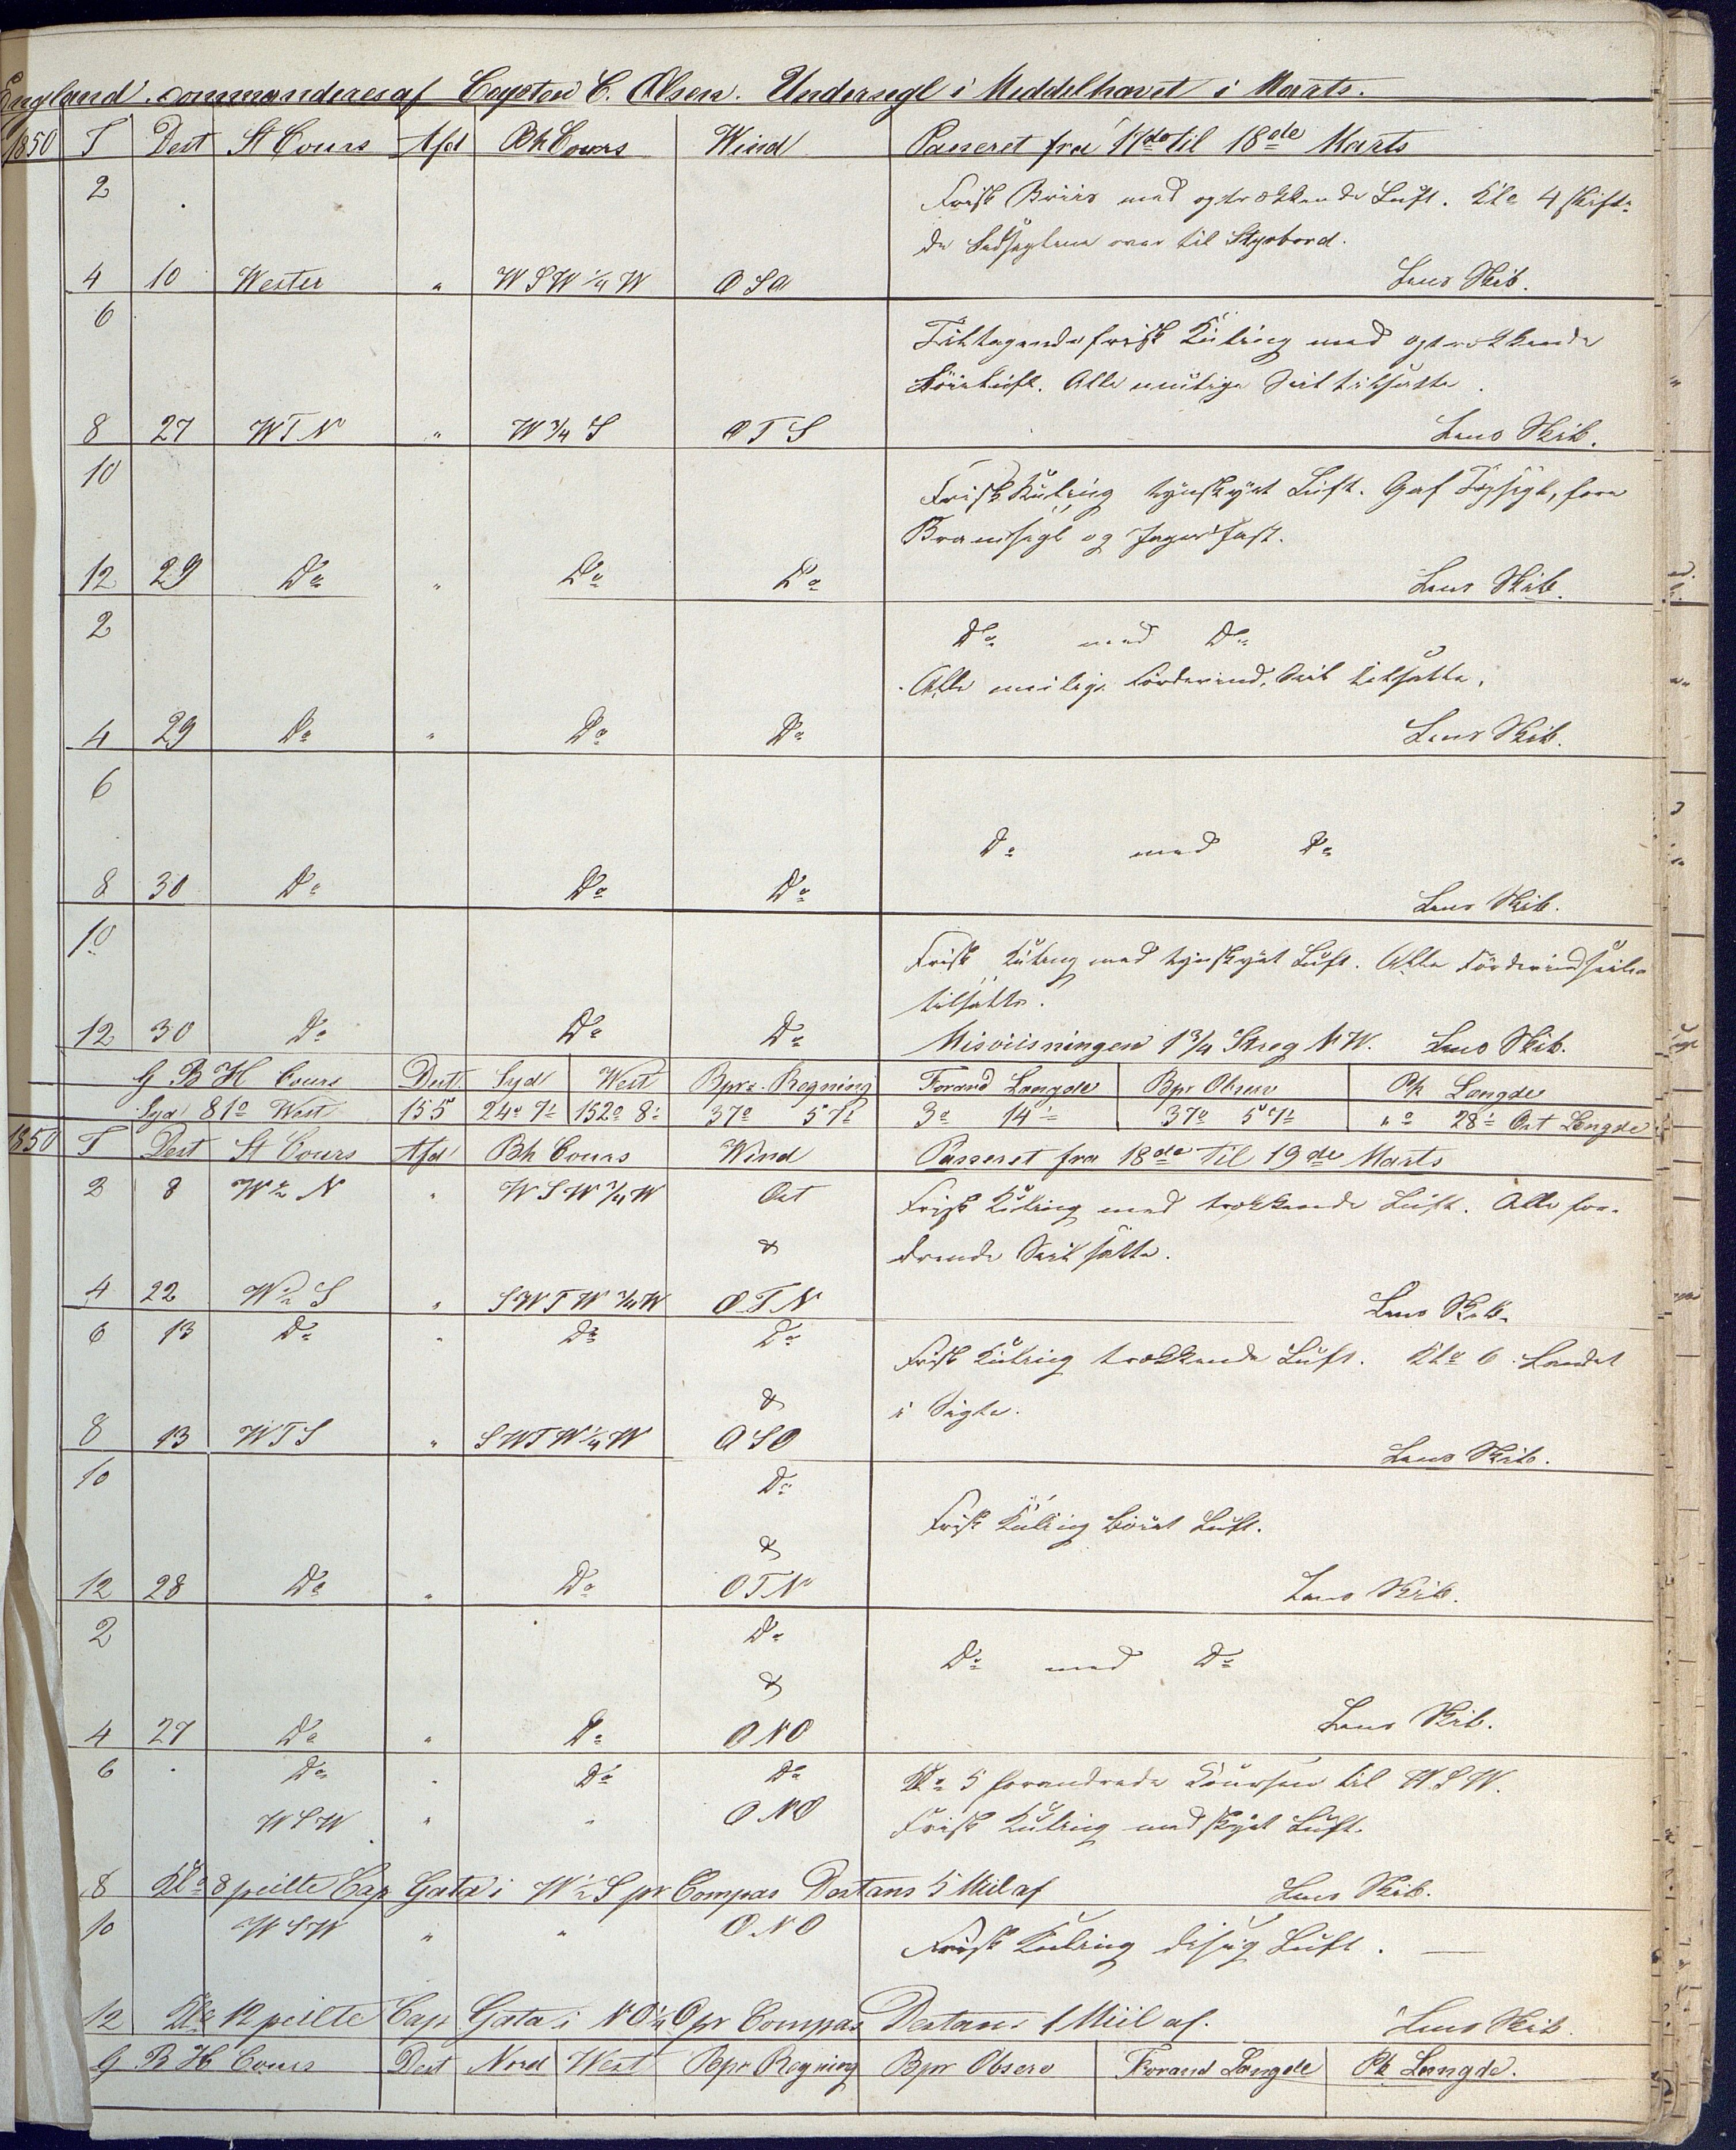 England. commanderes af Capten C. Olsen. Undersegl i Middelhavet i Marts.
1850 T Dest St Cours Afd Bh Cours Wind Passeret fra 17de til 18de Marts
2 Frisk Briis med optrækkende Luft. Kl. 4 skift-
de Ledseglene over til Styrbord.
4 10 Wester " WSW 1/4 W OSO Lens Skib.
6 Tiltagende frisk Kuling med optrækkende
Luft. Alle mulige Seil tilsatte.
8 27 WTN " W 3/4 S OTS Lens Skib.
10 Frisk Kuling tynskyet Luft. Gaf Topsegl, fore
Bramsegl og Jager fast.
12 29 Do " Do Do Lens Skib.
2 Do med Do
Alle mulige Fordevind Seil tilsatte.
4 29 Do " Do Do Lens Skib.
6 Do med Do
8 30 Do Do Do Lens Skib.
10 Frisk Kuling med tynskyet Luft. Alle Fordevindseile
tilsatte.
12 30 Do Do Do Misviisningen 1 3/4 Streg NW. Lens Skib.
G B H Cours Dest. Syd West Bpr. Regning Forand Longde Bpr Observ Ph Longde
Syd 81° West 155 24° 7' 152° 8' 37° 57' 3° 14' 37° 57' "° 28' Ost Longde
1850 T Dest St Cours Afd Bh Cours Wind Passeret fra 18de til 19de Marts
2 8 W 1/2 N " WSW 1/4 W Ost Frisk Kuling med trækkende Luft. Alle for-
& drende Seil satte.
4 22 W 1/2 S " SWTW 3/4 W OTN Lens Skib.
6 13 Do " Do Do Frisk Kuling trækkende Luft. Kl. 6 Landet
& i Sigte.
8 13 WTS " SWTW 1/4 W OSO Lens Skib.
10 Do Frisk Kuling Luft.
&
12 28 Do " Do OTN Lens Skib.
2 Do Do med Do
&
4 27 Do " Do ONO Lens Skib.
6 " Do " Do Do Kl. 5 forandrede Coursen til WSW.
WSW " " ONO Frisk Kuling med skyet Luft.
8 Kl. 8 peilte Cap Gata i W 1/2 S pr Compas Destans 5 Miil af Lens Skib.
10 WSW " " ONO Frisk Kuling disig Luft.
12 Kl. 12 peilte Cap Gata i NO 1/4 O pr Compas Destans 1 Miil af. Lens Skib.
G B H Cours Dest Nord West Bpr Regning Bpr Observ Forand Longde Ph Longde.